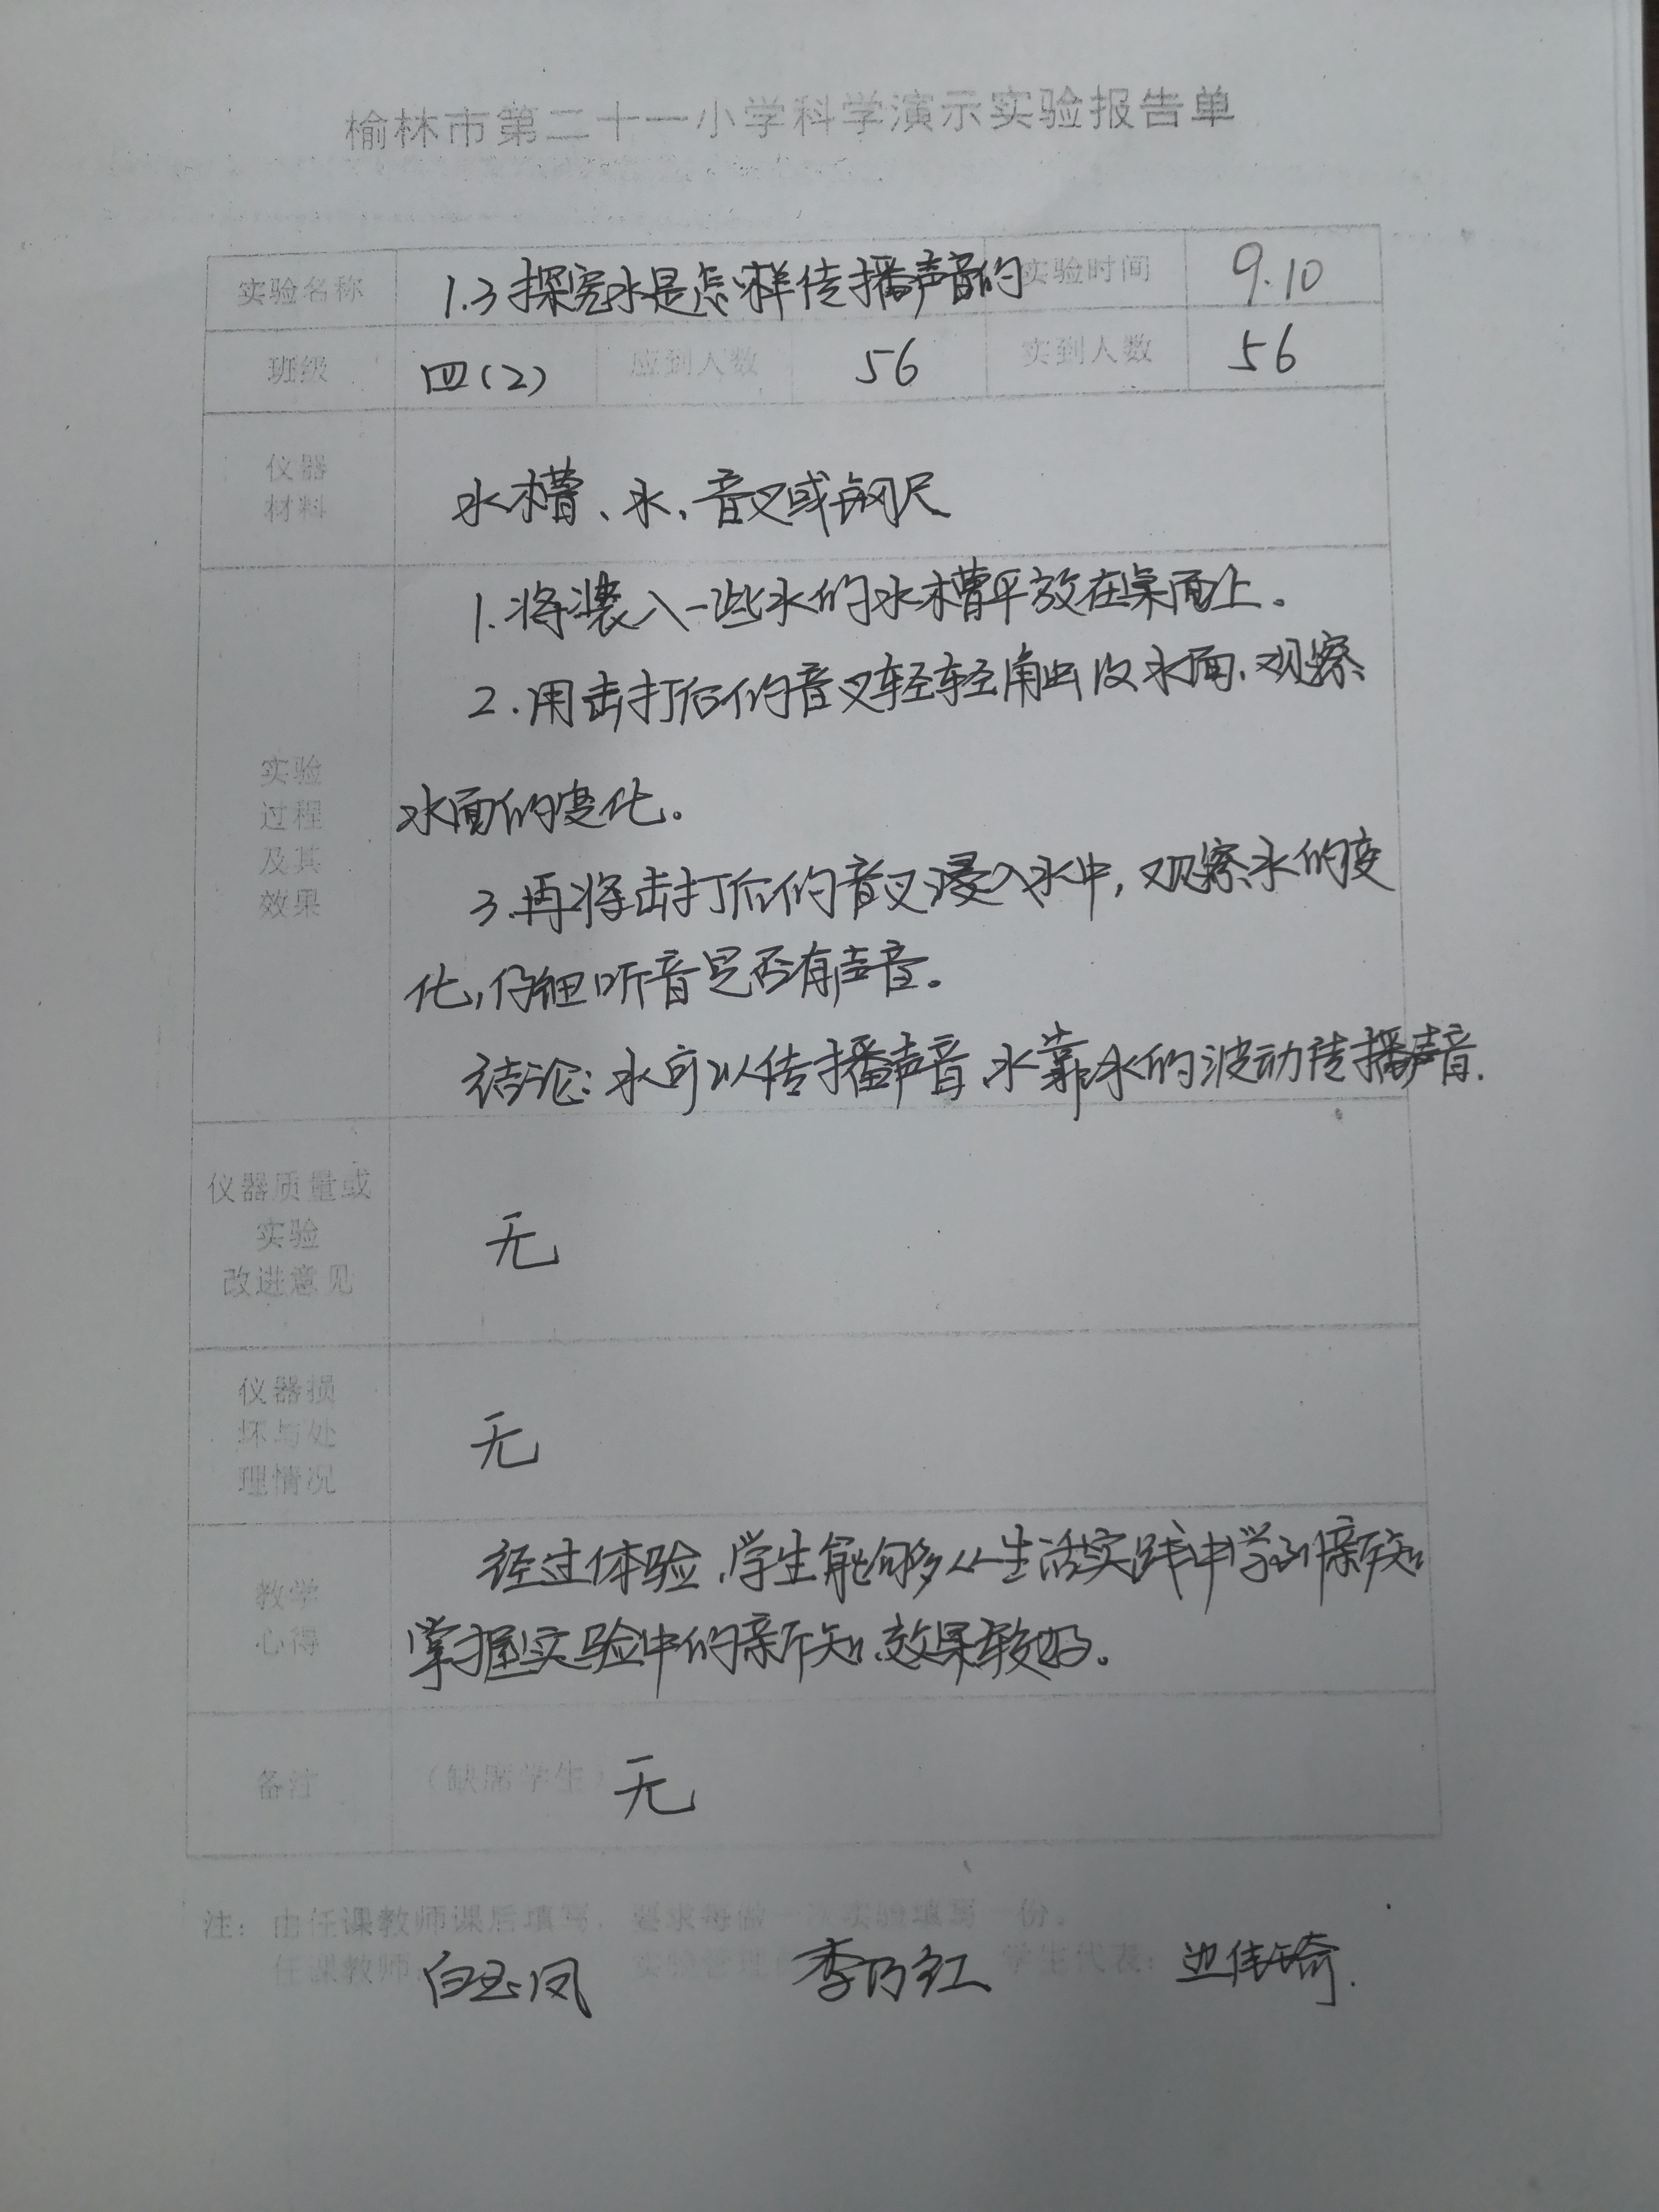 榆林市第二十一小学科学演示实验报告单
实验名称 1.3探究水是怎样传播声音的 实验时间 9.10
班级 四(2) 应到人数 56 实到人数 56
仪器
材料
水槽、水、音叉或钢尺
1.将装入一些水的水槽平放在桌面上。
2.用击打后的音叉轻轻触及水面、观察
水面的变化。
3.再将击打后的音叉浸入水中,观察水的变
化,仔细听音是否有声音。
结论:水可以传播声音、水靠水的波动传播声音.
实验
过程
及其
效果
仪器质量或
实验
改进意见
无
仪器损
坏与处
理情况
无
教学
心得
经过体验,学生能够从生活实践中学到新知
掌握实验中的新知、效果较好。
备注 (缺席学生) 无
注: 由任课教师课后填写, 要求每做一次实验填写一份。
任课教师: 白玉凤 实验管理 李乃红 学生代表: 边伟琦.